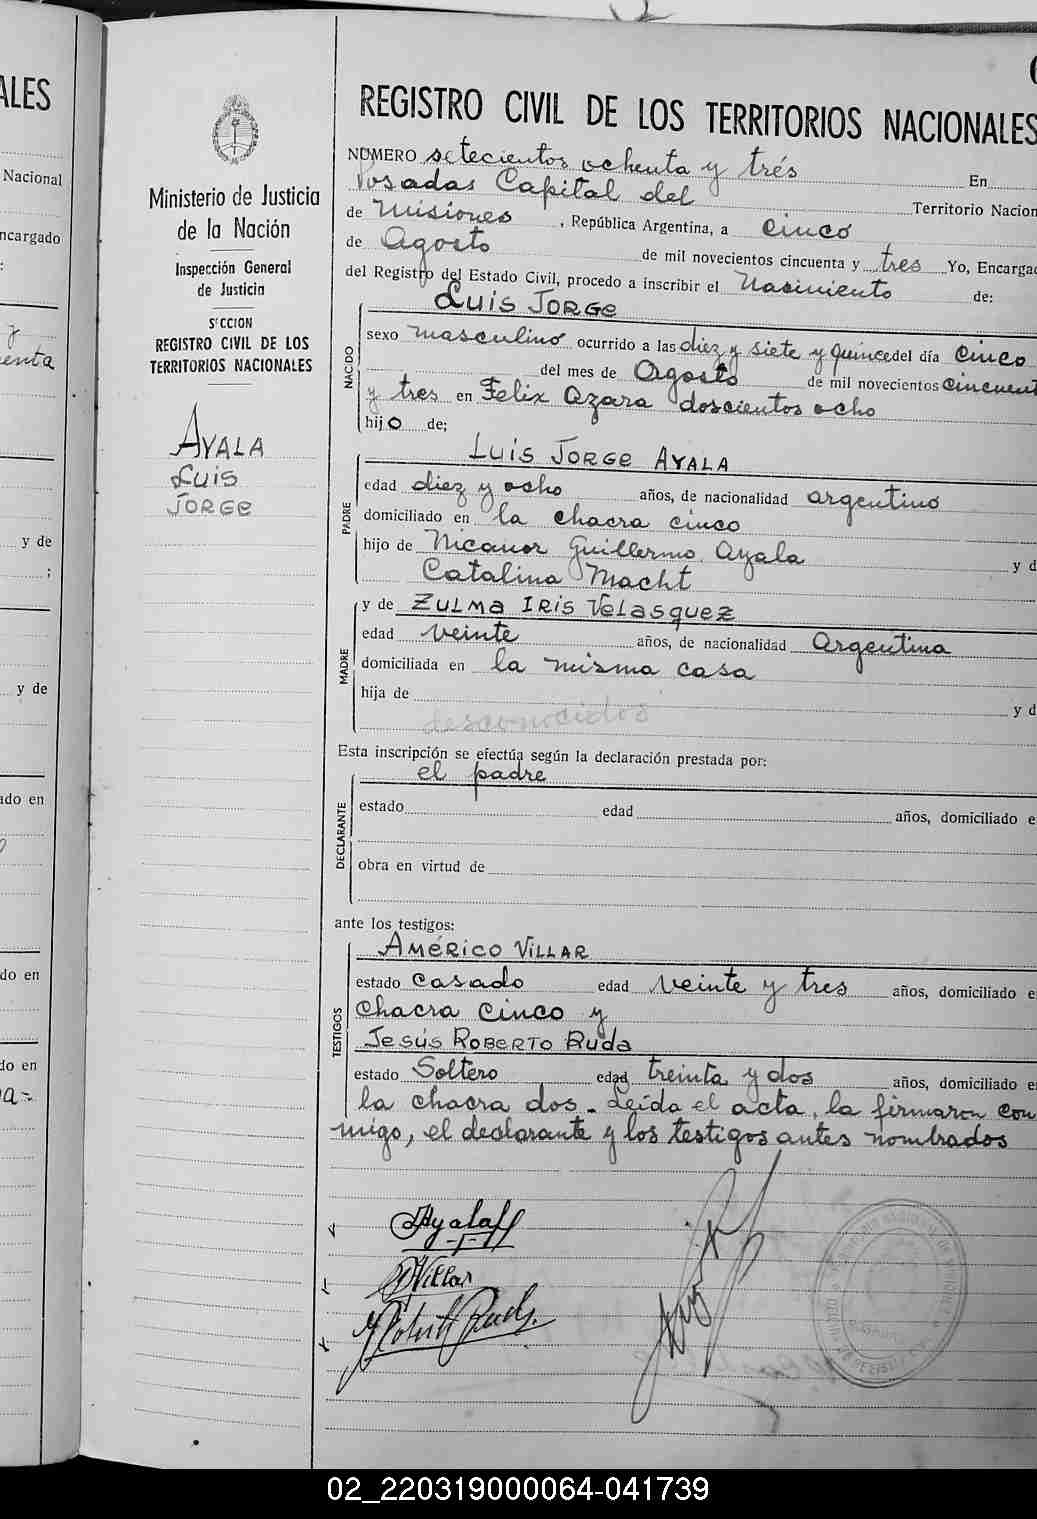 ALES
Nacional
ncargado
:
y
enta
y de
;
y de
ado en
do en
do en
a=
Ministerio de Justicia
de la Nación
Inspección General
de Justicia
SECCION
REGISTRO CIVIL DE LOS
TERRITORIOS NACIONALES
AYALA
Luis
JORGE
REGISTRO CIVIL DE LOS TERRITORIOS NACIONALES
NUMERO setecientos ochenta y trés En
Posadas Capital del Territorio Nacion
de Misiones , República Argentina, a cinco
de Agosto de mil novecientos cincuenta y tres Yo, Encarga
del Registro del Estado Civil, procedo a inscribir el Nacimiento de:
NACIDO
Luis JORGE
sexo masculino ocurrido a las diez y siete y quince del día cinco
del mes de Agosto de mil novecientos cincuent
y tres en Felix Azara doscientos ocho
hijo de;
PADRE
Luis JORGE AYALA
edad diez y ocho años, de nacionalidad argentino
domiciliado en la chacra cinco
hijo de Nicanor Guillermo Ayala y d
Catalina Macht
MADRE
y de ZULMA IRIS VELASQUEZ
edad veinte años, de nacionalidad Argentina
domiciliada en la misma casa
hija de y d
desconocidos
Esta inscripción se efectúa según la declaración prestada por:
el padre
DECLARANTE
estado edad años, domiciliado e
obra en virtud de
ante los testigos:
TESTIGOS
AMÉRICO VILLAR
estado casado edad veinte y tres años, domiciliado e
chacra cinco y
JESÚS ROBERTO RUDA
estado Soltero edad treinta y dos años, domiciliado e
la chacra dos. Leída el acta, la firmaron con
migo, el declarante y los testigos antes nombrados
Ayala
Villar
02_220319000064-041739